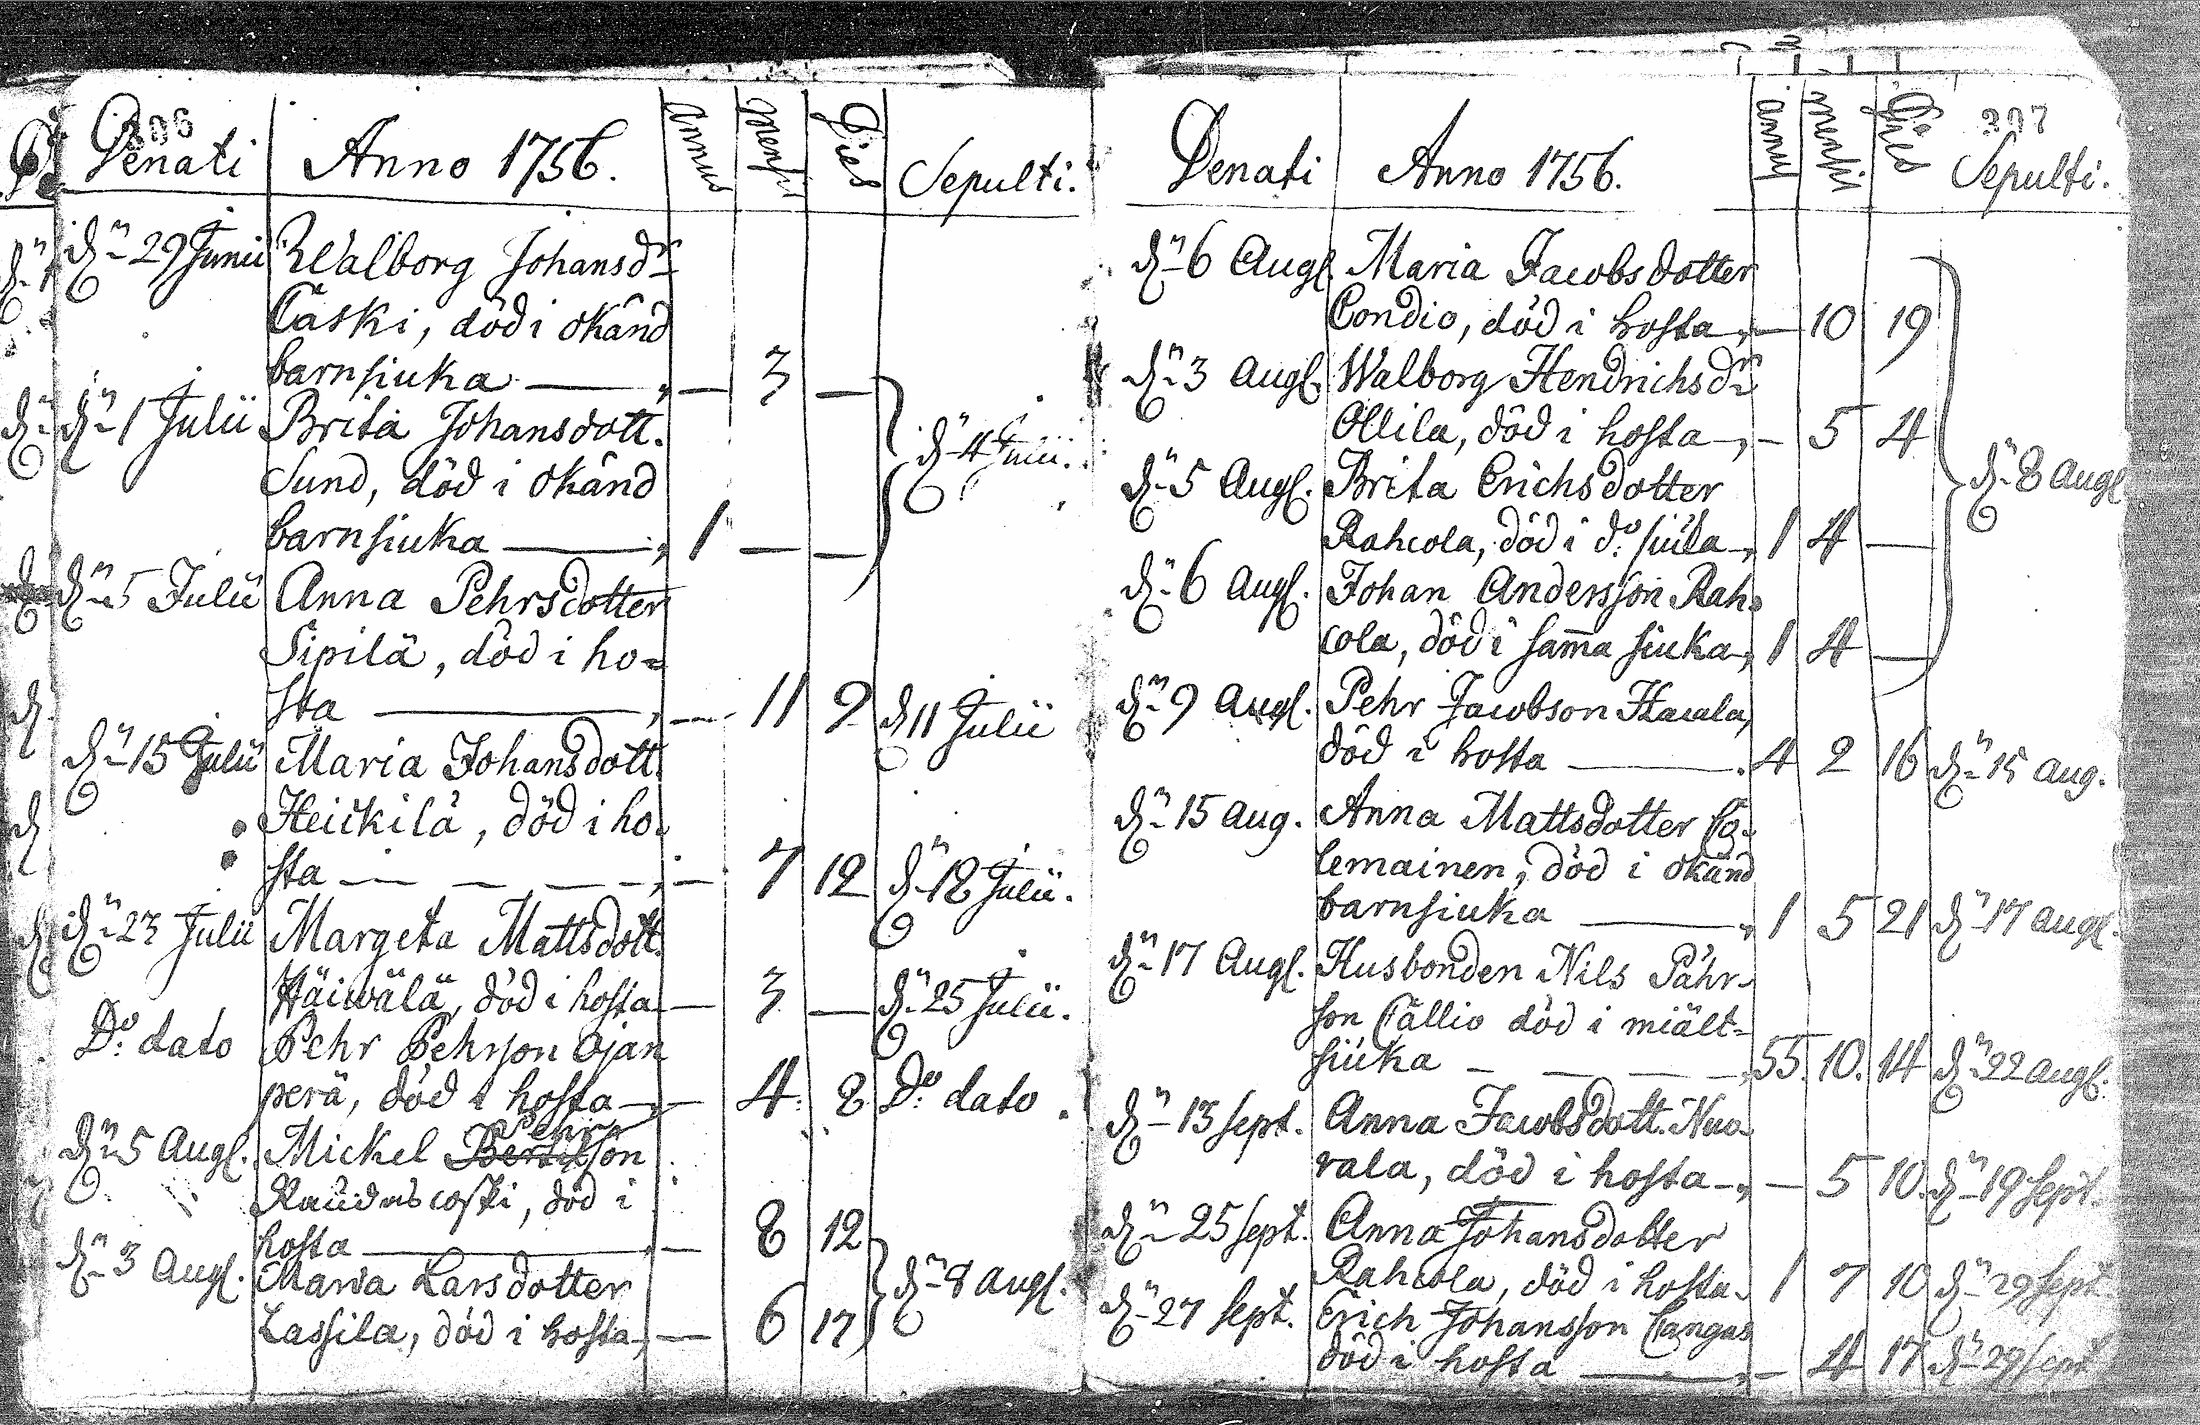 396
Denati Anno 1756. Annus Mensis Dies Sepulti.
dn 29 Junii Walborg Johansdr
Caski, död i okänd
barnsiuka — 3 —
dn 1 Julii Brita Johansdott.
Sund, död i okänd dn 4 Julii.
barnsiuka 1 — —
dn 5 Julii Anna Pehrsdotter
Sipilä, död i ho-
sta — 11 9 d 11 Julii
dn 15 Julii Maria Johansdott.
Heickilä, död i ho-
sta — 7 12 dn 18 Julii.
dn 23 Julii Margeta Mattsdott.
Häiwälä, död i hosta — 3 — dn 25 Julii.
Do: dato Pehr Pehrson Ojan
perä, död i hosta — 4 8 Do: dato
Pehr
dn 5 Augl. Mickel Bertilson
Raudascoski, död i
hosta — 8 12
dn 3 Augl. Maria Larsdotter dn 8 Augl.
Lassila, död i hosta, — 6 17
397
Denati Anno 1756. annus mensis Dies Sepulti.
dn 6 Augl. Maria Jacobsdotter
Condio, död i hosta, — 10 19
dn 3 Augl. Walborg Hendrichsdr
Ollila, död i hosta, — 5 4
dn 5 Augl. Brita Erichsdotter dn 8 Augl.
Rahcola, död i do: siuka, 1 4 —
dn 6 Augl. Johan Andersson Rah-
cola, död i samma siuka, 1 4 —
dn 9 Augl. Pehr Jacobson Hawla,
död i hosta 4 2 16 dn 15 Aug.
dn 15 Aug. Anna Mattsdotter Co-
lemainen, död i okänd
barnsiuka 1 5 21 dn 17 Augl.
dn 17 Augl. Husbonden Nils Pähr-
son Källio död i miält-
siuka 55. 10. 14 dn 22 Augl.
dn 13 Sept. Anna Jacobsdott. Nuo-
rala, död i hosta, — 5 10. dn 19 Sept.
dn 25 Sept. Anna Johansdotter
Rahcola, död i hosta. 1 7 10 dn 29 Sept
dn 27 Sept. Erich Johansson Cangas
död i hosta — 4 17 dn 29 Sept